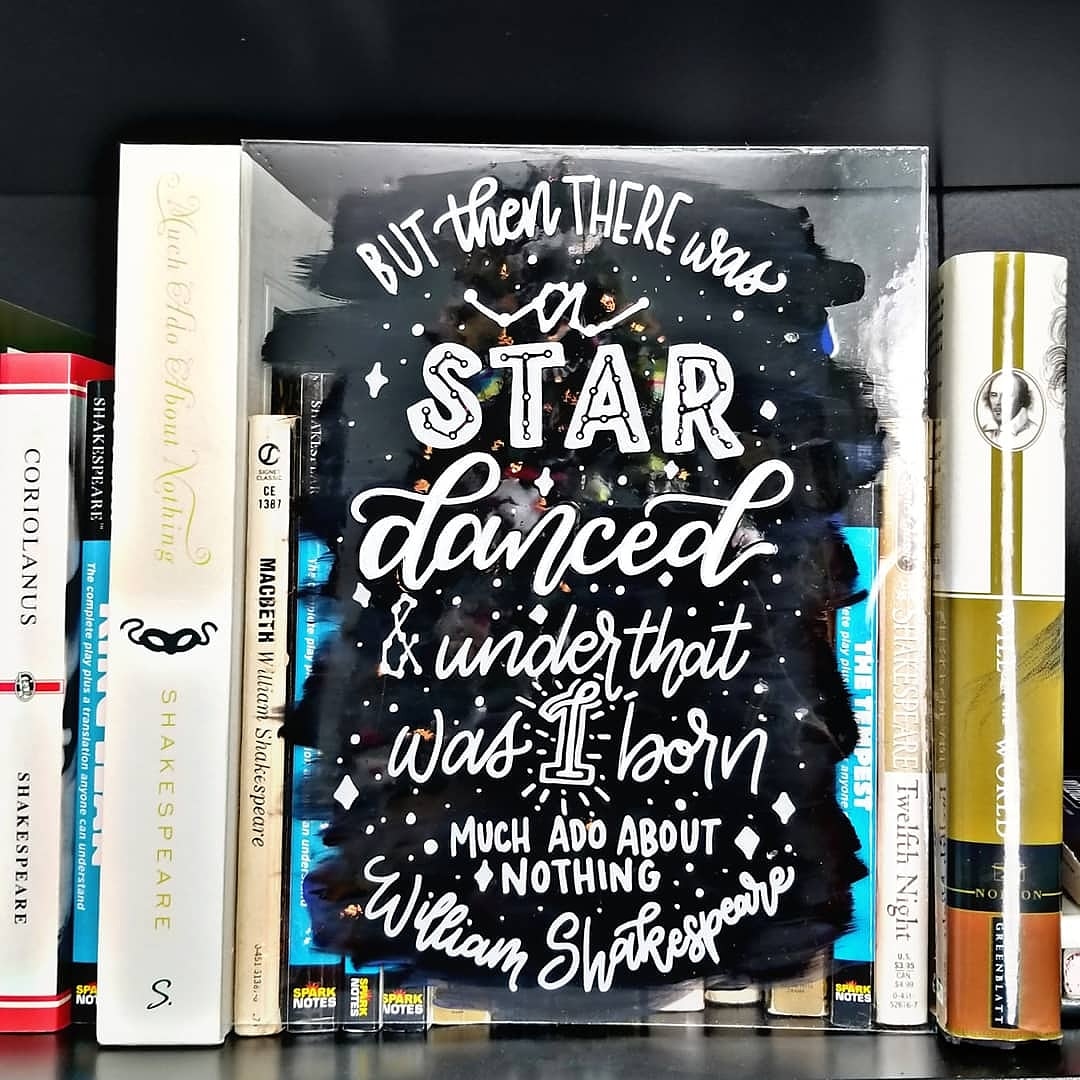 CORIOLANUS
SHAKESPEARE
SHAKESPEARE™
The complete play plus a translation anyone can understand
Much Ado About Nothing
SHAKESPEARE
S.
SIGNET
CLASSIC
CE
1387
MACBETH William Shakespeare
BUT then THERE was
a
STAR
danced
& under that
was I born
MUCH ADO ABOUT
NOTHING
William Shakespeare
SPARK
NOTES
SPARK
NOTES
SPARK
NOTES
THE TEMPEST
SPARK
NOTES
SHAKESPEARE
Twelfth Night
U.S.
$3.95
CAN.
$4.99
WORLD
NORTON
GREENBLATT